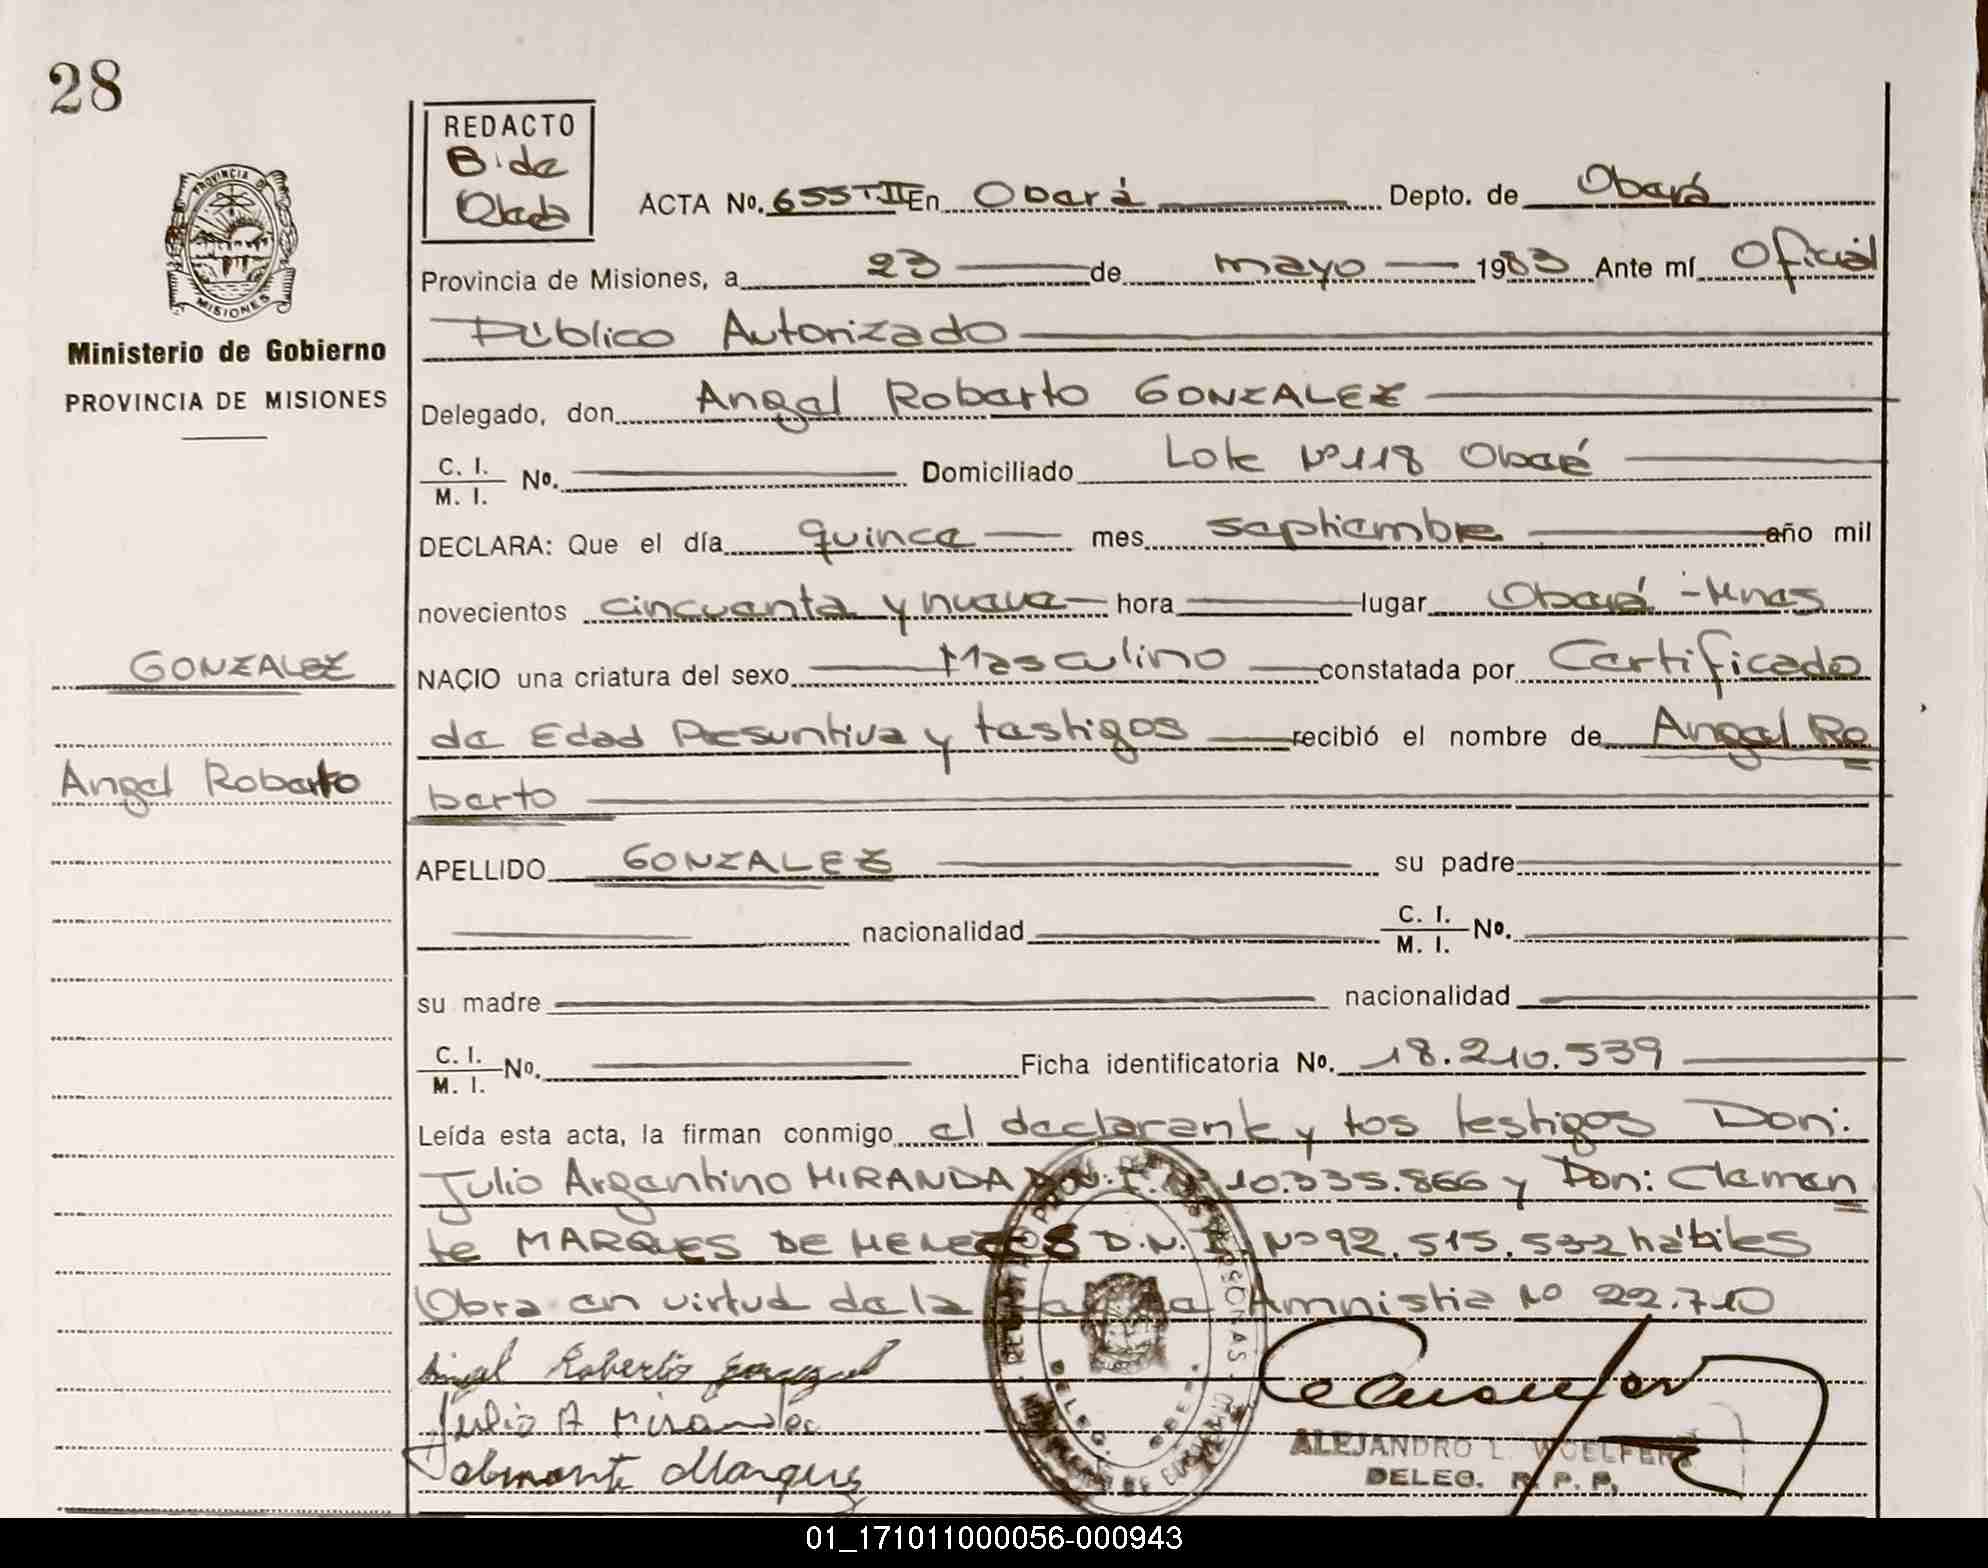 28
PROVINCIA DE
MISIONES
Ministerio de Gobierno
PROVINCIA DE MISIONES
GONZALEZ
Angel Roberto
REDACTO
B. de
ACTA No. 655 T II En Oberá Depto. de Oberá
Provincia de Misiones, a 23 de mayo 1983 Ante mí Oficial
Público Autorizado
Delegado, don Angel Roberto GONZALEZ
C. I.
M. I. No. Domiciliado Lote Nº 118 Oberá
DECLARA: Que el día quince mes septiembre año mil
novecientos cincuenta y nueve hora lugar Oberá - Mnes
NACIO una criatura del sexo Masculino constatada por Certificado
de Edad Presuntiva y testigos recibió el nombre de Angel Ro
berto
APELLIDO GONZALEZ su padre
nacionalidad C. I.
M. I. No.
su madre nacionalidad
C. I.
M. I. No. Ficha identificatoria No. 18.210.539
Leída esta acta, la firman conmigo el declarante y los testigos Don:
Julio Argentino MIRANDA D.N.I. Nº 10.335.866 y Don: Clemen
te MARQUES DE MENEZES D.N.I. Nº 92.515.532 hábiles
Obra en virtud de la Ley de Amnistia Nº 22.710
Angel Roberto
Julio A Miranda
Marques
DELEG. OBERA
ALEJANDRO L. WOELFERT
DELEG. R. P. P.
01_171011000056-000943